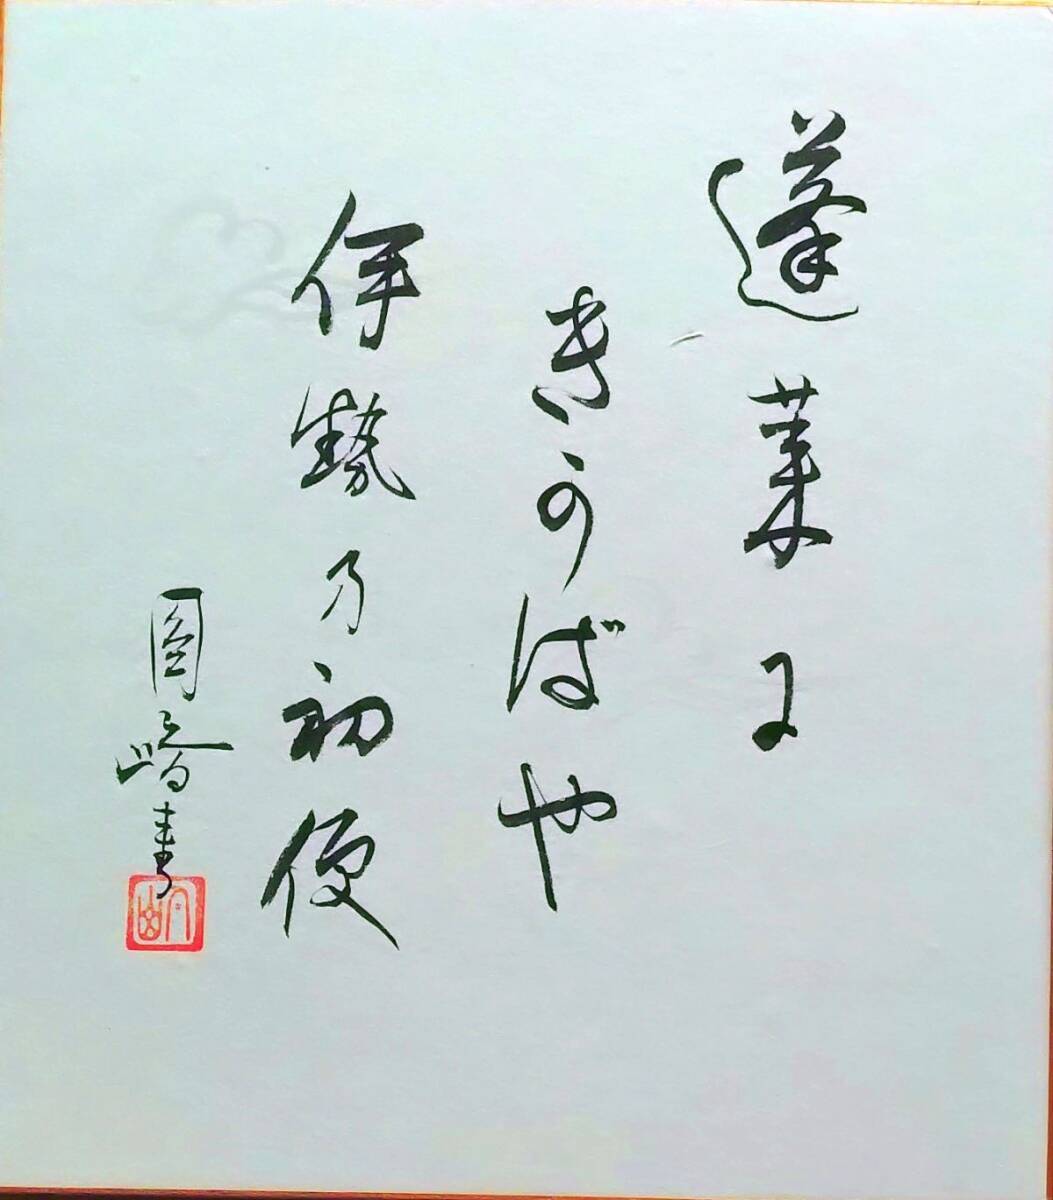 蓬莱に
きかばや
伊勢乃初便
書